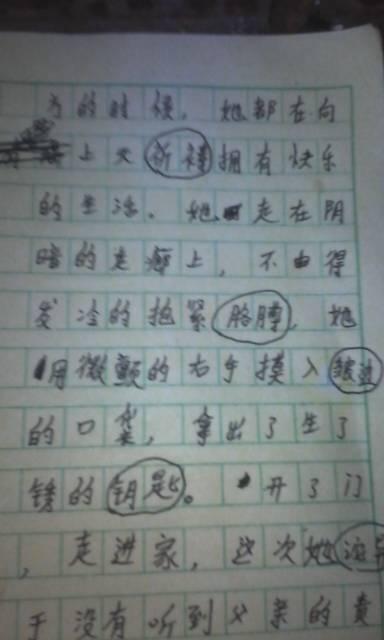 的时候，她都在向
上天祈祷拥有快乐
的生活。她走在阴
暗的走廊上，不由得
发冷的抱紧胳膊，她
用微颤的右手摸入
的口袋，拿出了生了
锈的钥匙。开了门
，走进家，这次她
于没有听到父亲的责